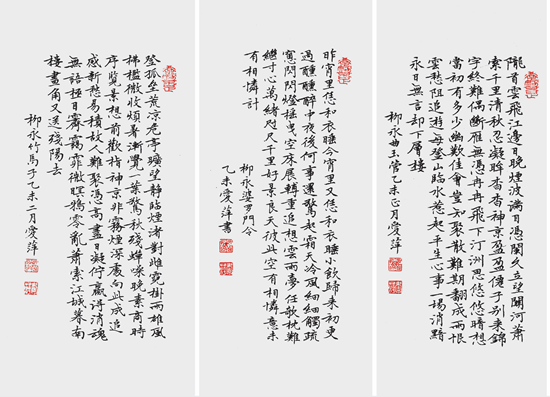 隴首雲飛江邊日晚煙波滿目憑闌久立望關河蕭
索千里清秋忍凝眸杳杳神京盈盈僊子別來錦
字終難偶斷雁無憑冉冉飛下汀洲思悠悠暗想
當初有多少幽歡佳會豈知聚散難期翻成雨恨
雲愁阻追遊每登山臨水惹起平生心事一場消黯
永日無言却下層樓
柳永曲玉管乙未正月愛萍
昨宵里恁和衣睡今宵里又恁和衣睡小飲歸來初更
過醺醺醉中夜後何事還驚起霜天冷風細細觸疏
窗閃閃燈搖曳空床展轉重追想雲雨夢任攲枕難
繼寸心萬緒咫尺千里好景良天彼此空有相憐意未
有相憐計
柳永婆羅門令
乙未愛萍書
登孤壘荒涼危亭曠望靜臨煙渚對雌霓掛雨雄風
拂檻微收煩暑漸覺一葉驚秋殘蟬噪晚素商時
序覽景想前歡指神京非霧煙深處向此成追
感新愁易積故人難聚憑高盡日凝佇贏得消魂
無語極目霽靄霏微暝鴉零亂蕭索江城暮南
樓畫角又送殘陽去
柳永竹馬子乙未二月愛萍